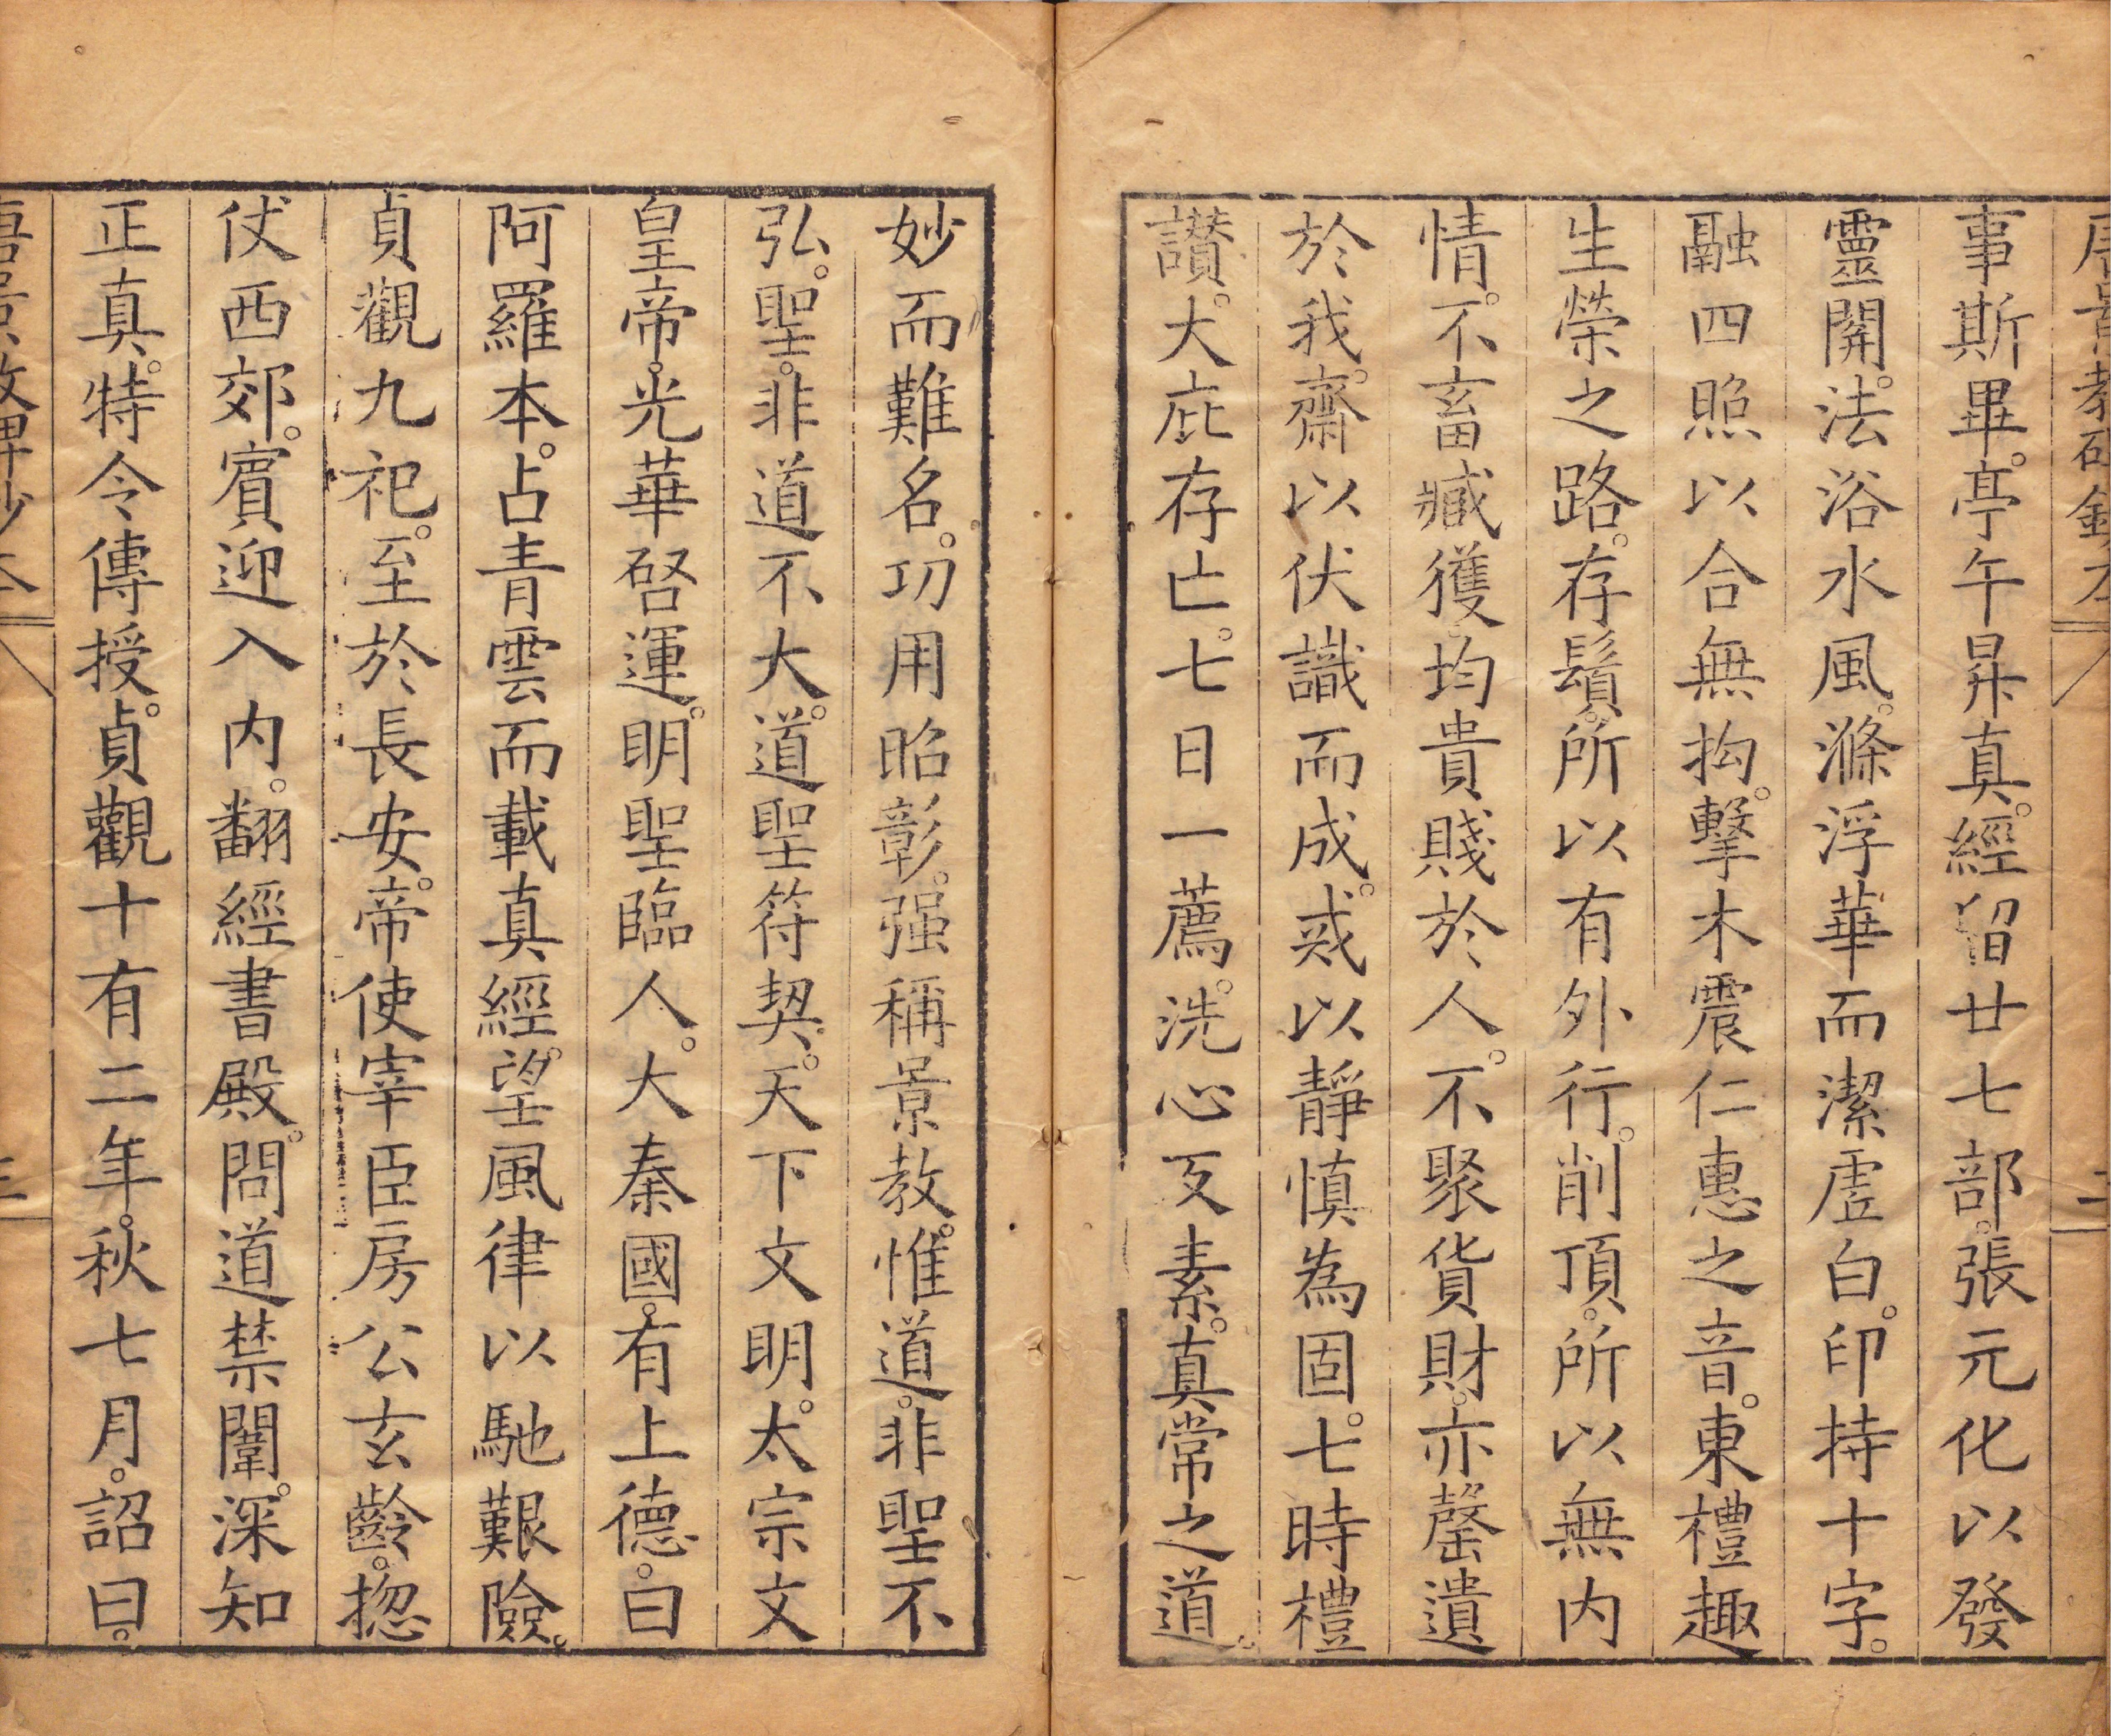 唐景教碑鈔本 二
事斯畢。亭午昇真。經留廿七部。張元化以發
靈關。法浴水風。滌浮華而潔虛白。印持十字。
融四照以合無拘。擊木震仁惠之音。東禮趣
生榮之路。存鬚。所以有外行。削頂。所以無內
情。不畜臧獲。均貴賤於人。不聚貨財。亦罄遺
於我。齋以伏識而成。戒以靜慎為固。七時禮
讃。大庇存亡。七日一薦。洗心反素。真常之道。
妙而難名。功用昭彰。强稱景教。惟道。非聖不
弘。聖。非道不大。道聖符契。天下文明。太宗文
皇帝。光華啓運。明聖臨人。大秦國。有上德。曰
阿羅本。占青雲而載真經。望風律以馳艱險。
貞觀九祀。至於長安。帝使宰臣房公玄齡。惣
仗西郊。賓迎入内。翻經書殿。問道禁闈。深知
正真。特令傳授。貞觀十有二年。秋七月。詔曰。
唐景教碑鈔本 三